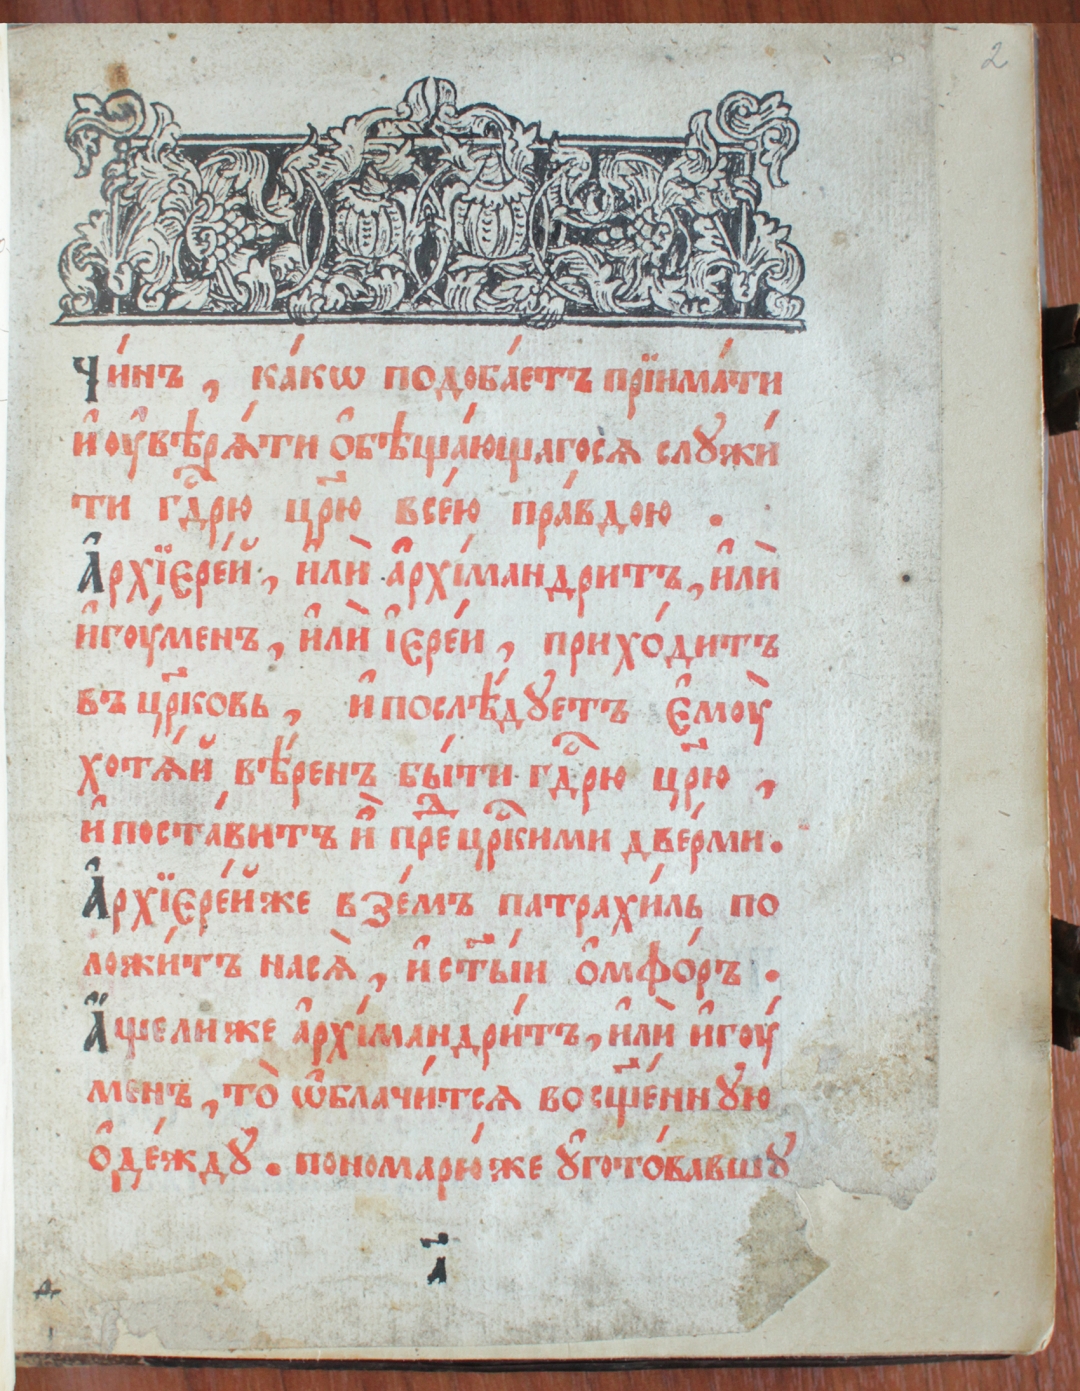 2
Чи́нъ, ка́кѡ подоба́етъ прїима́ти
и҆ оу҆вѣрѧ́ти ѻ҆бѣща́ющагосѧ слꙋжи́
ти гдⷭ҇рю цр҃ю все́ю пра́вдою .
А҆рхїере́й, и҆лѝ а҆рхі́мандритъ, и҆лѝ
и҆гоу́менъ, и҆лѝ і҆ере́и, прихо́дитъ
въ цр҃ковь, и҆ послѣ́дꙋетъ є҆моу̀
хотѧ́й вѣ́ренъ бы́ти гдⷭ҇рю цр҃ю,
и҆ поста́витъ и҆̀ преⷣ црⷭ҇кими две́рми.
А҆рхїере́йже взе́мъ патрахи́ль по
ложи́тъ насѧ̀, и҆ ст҃ы́и ѻ҆мфо́ръ .
А҆́щелиже а҆рхі́мандри́тъ, и҆лѝ и҆гоу́
менъ, то̀ ѡ҆блачи́тсѧ восщ҃е́ннꙋю
ѻ҆де́ждꙋ. пономарю́же ᲂу҆гото́вавшꙋ
а҃